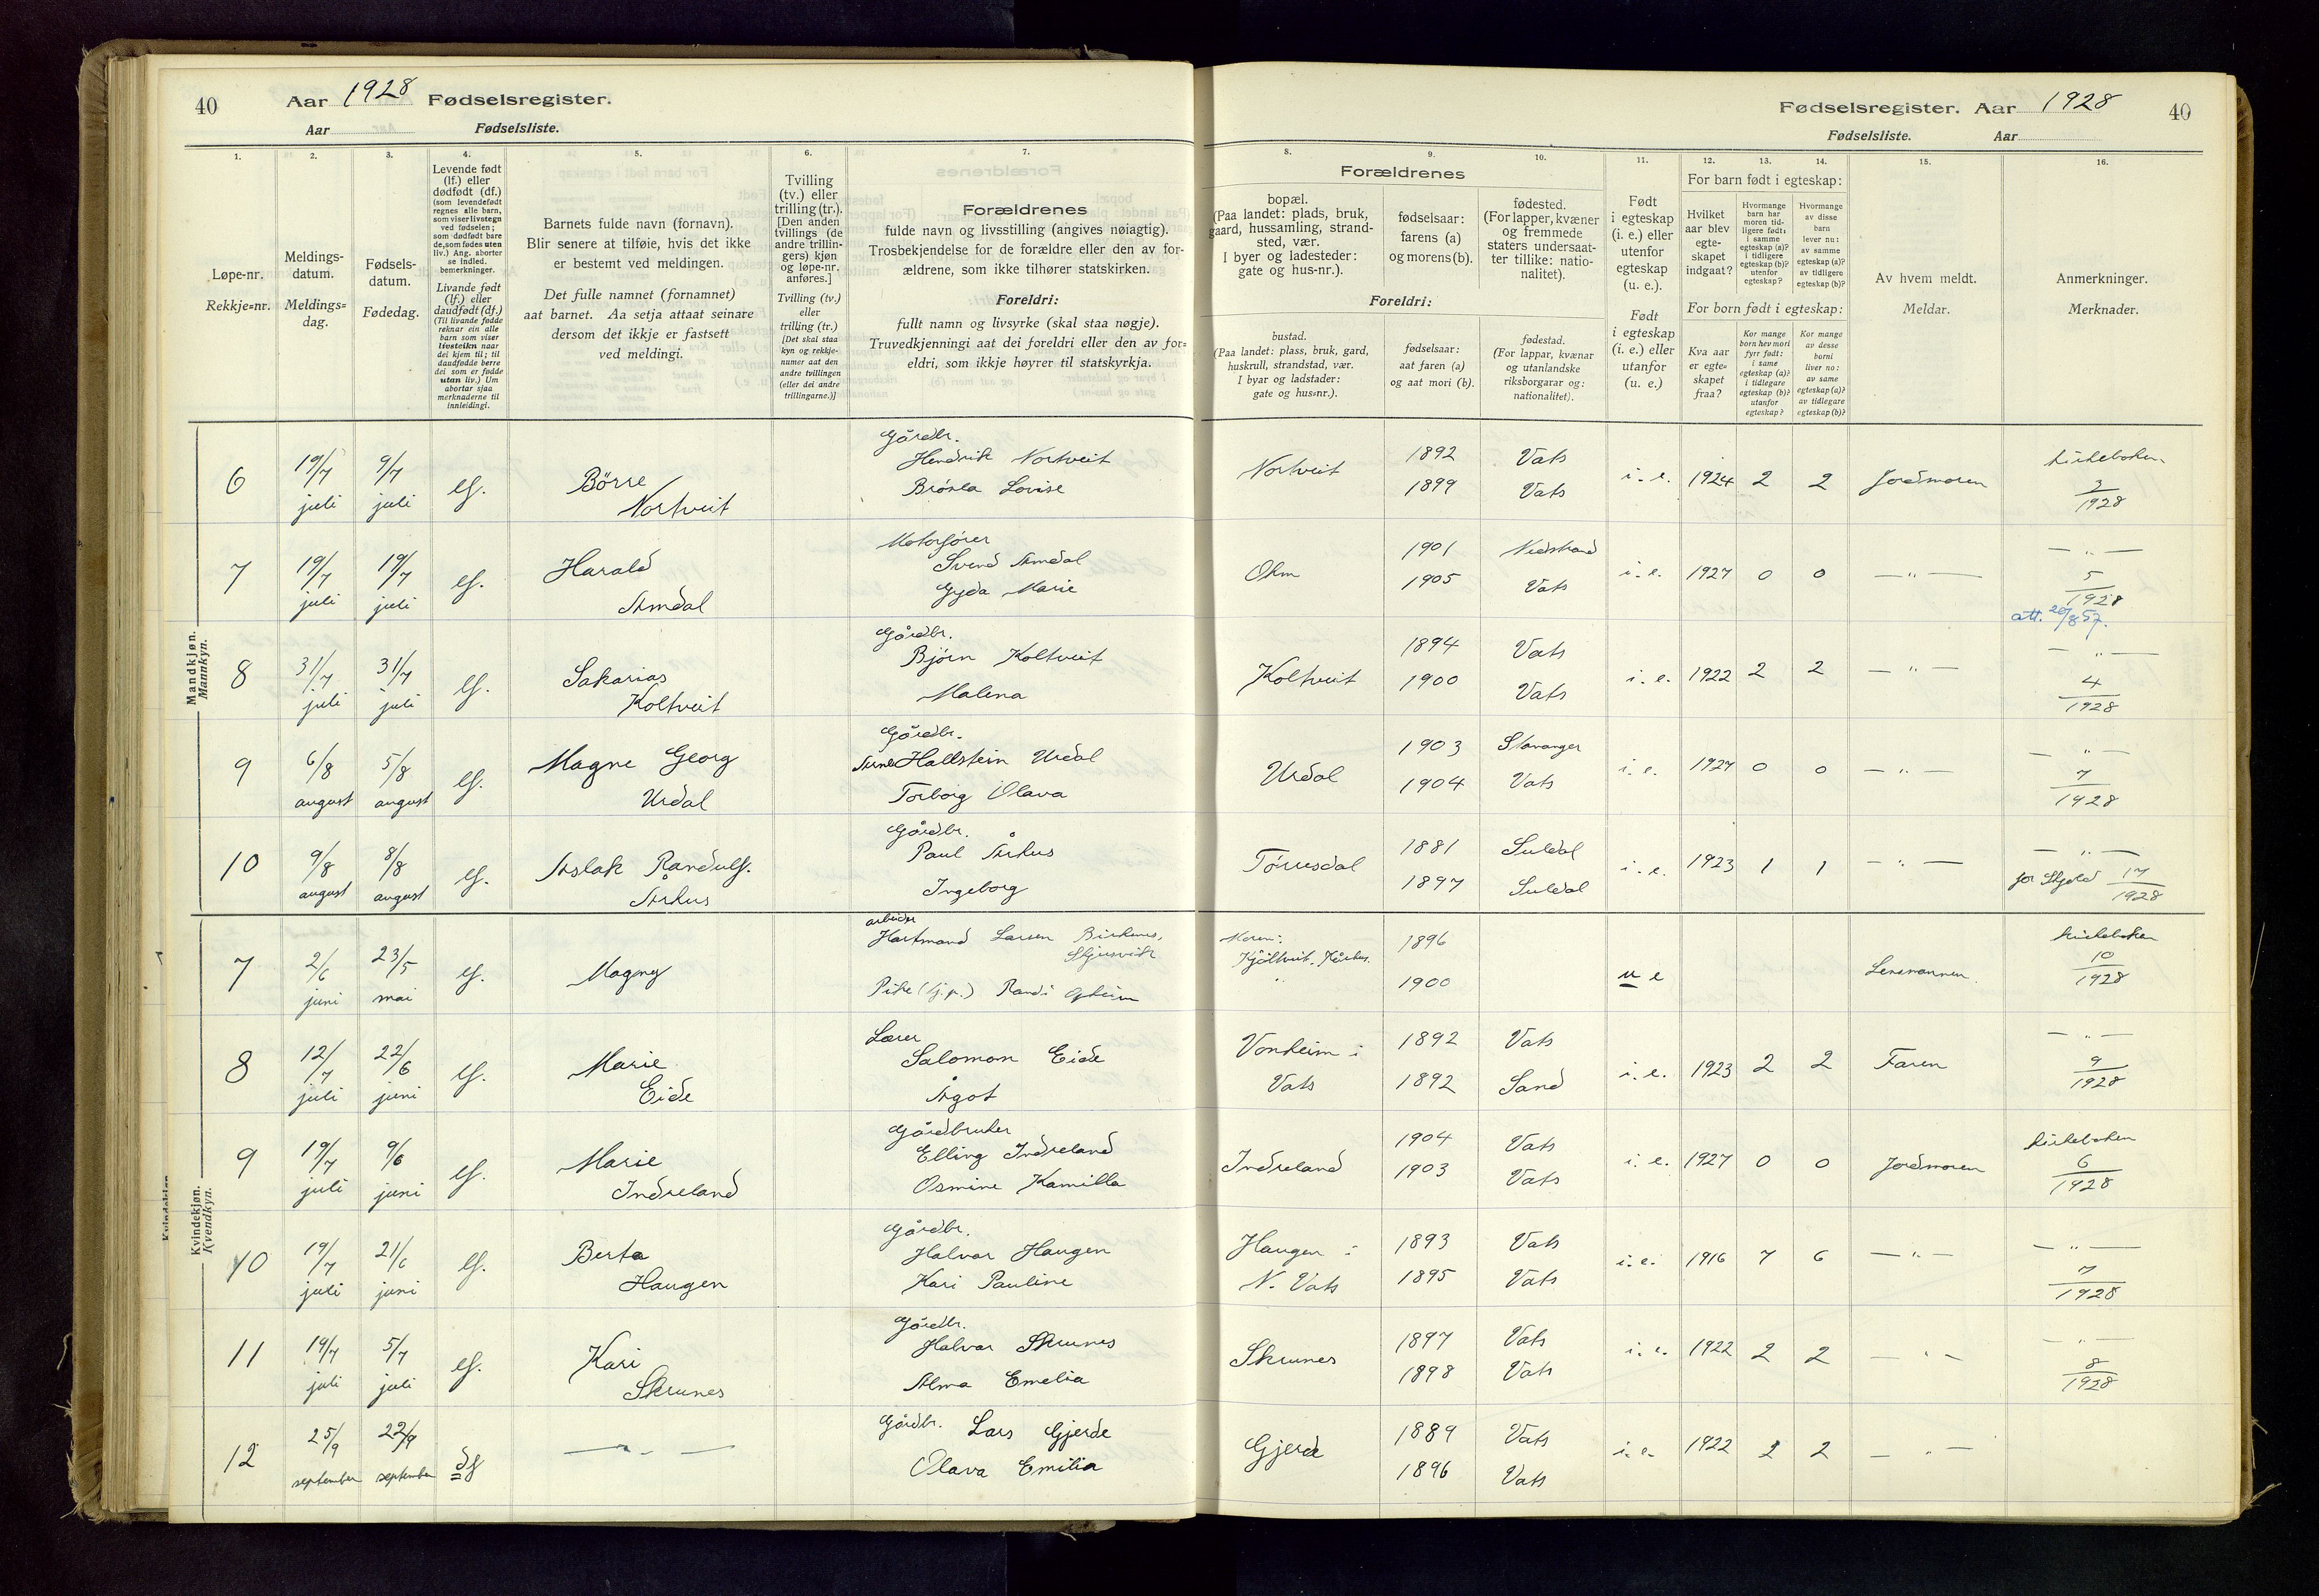 40 Aar 1928 Fødselsregister.
Aar Fødselsliste.
Fødselsregister. Aar 1928 40
Fødselsliste. Aar
1. 2. 3. 4. 5. 6. 7. 8. 9. 10. 11. 12. 13. 14. 15. 16.
Løpe-nr.
Rekkje-nr.
Meldings-
datum.
Meldings-
dag.
Fødsels-
datum.
Fødedag.
Levende født
(lf.) eller
dødfødt (df.)
(som levendefødt
regnes alle barn,
som viser livstegn
ved fødselen;
som dødfødt bare
de, som fødes uten
liv.) Ang. aborter
se indled.
bemerkninger.
Livande født
(lf.) eller
daudfødt (df.)
(Til livande fødde
reknar ein alle
barn som viser
livsteikn naar
dei kjem til; til
daudfødde berre
dei som er fødde
utan liv.) Um
abortar sjaa
merknaderne til
innleidingi.
Barnets fulde navn (fornavn).
Blir senere at tilføie, hvis det ikke
er bestemt ved meldingen.
Det fulle namnet (fornamnet)
aat barnet. Aa setja attaat seinare
dersom det ikkje er fastsett
ved meldingi.
Tvilling
(tv.) eller
trilling (tr.).
[Den anden
tvillings (de
andre trillin-
gers) kjøn
og løpe-nr.
anføres.]
Tvilling (tv.)
eller
trilling (tr.)
[Det skal staa
kyn og rekkje-
numer aat den
andre tvillingen
(eller dei andre
trillingarne.)]
Forældrenes
fulde navn og livsstilling (angives nøiagtig).
Trosbekjendelse for de forældre eller den av for-
ældrene, som ikke tilhører statskirken.
Foreldri:
fullt namn og livsyrke (skal staa nøgje).
Truvedkjenningi aat dei foreldri eller den av for-
eldri, som ikkje høyrer til statskyrkja.
Forældrenes
bopæl.
(Paa landet: plads, bruk,
gaard, hussamling, strand-
sted, vær.
I byer og ladesteder:
gate og hus-nr.).
fødselsaar:
farens (a)
og morens (b).
fødested.
(For lapper, kvæner
og fremmede
staters undersaat-
ter tillike: natio-
nalitet).
Foreldri:
bustad.
(Paa landet: plass, bruk, gard,
huskrull, strandstad, vær.
I byar og ladstader:
gate og hus-nr.).
fødselsaar:
aat faren (a)
og aat mori (b).
fødestad.
(For lappar, kvænar
og utanlandske
riksborgarar og:
nationalitet).
Født
i egteskap
(i. e.) eller
utenfor
egteskap
(u. e.).
Født
i egteskap
(i. e.) eller
utanfor
(u. e.)
For barn født i egteskap:
Hvilket
aar blev
egte-
skapet
indgaat?
Hvormange
barn har
moren tid-
ligere født:
i samme
egteskap (a)?
i tidligere
egteskap (b)?
utenfor
egteskap?
Hvormange
av disse
barn
lever nu:
av samme
egteskap (a)?
av tidligere
egteskap (b)?
For born født i egteskap:
Kva aar
er egte-
skapet
fraa?
Kor mange
born hev mori
fyrr født:
i same
egteskap (a)?
i tidlegare
egteskap (b)?
utanfor
egteskap?
Kor mange
av desse
borni
liver no:
av same
egteskap (a)?
av tidlegare
egteskap (b)?
Av hvem meldt.
Meldar.
Anmerkninger.
Merknader.
Mandkjøn.
Mannkyn.
6 19/7 juli 9/7 juli lf. Börre Nortveit
Gårdbr.
Hendrik Nortveit
Lovise
Nortveit 1892 1899 Vats Vats i. e. 1924 2 2 Jordmoren
kirkeboken 3/1928
7 19/7 juli 19/7 juli lf. Harald Amdal
Motorfører
Svend Amdal
Gyda Marie
1901 1905 Nedstrand Vats i. e. 1927 0 0 — " —
— " — 5/1928
att. 20/8 57.
8 31/7 juli 31/7 juli lf. Sakarias Koltveit
Gårdbr.
Bjørn Koltveit
Malena
Koltveit 1894 1900 Vats Vats i. e. 1922 2 2 — " —
— " — 4/1928
9 6/8 august 5/8 august lf. Magne Georg Urdal
Gårdbr.
Arne Hallstein Urdal
Torborg Olava
Urdal 1903 1904 Stavanger Vats i. e. 1927 0 0 — " —
— " — 7/1928
10 9/8 august 8/8 august lf. Aslak Randulf. Århus
Gårdbr.
Paul Århus
Ingeborg
1881 1897 Suldal Suldal i. e. 1923 1 1 — " —
— " —
for Skjold 17/1928
Kvindekjøn.
Kvendkyn.
7 2/6 juni 23/5 mai lf. Magny
arbeider
Hartmand Larsen
Pike (tj.p.) Randi
Moren:
1896 1900 u e Lensmannen.
kirkeboken 10/1928
8 12/7 juli 22/6 juni lf. Marie Eide
Lærer
Salomon Eide
Ågot
Vonheim i Vats 1892 1892 Vats Sand i. e. 1923 2 2 Faren
— " — 9/1928
9 19/7 juli 9/6 juni lf. Marie Indreland
Gårdbruker
Elling Indreland
Osmine Kamilla
Indreland 1904 1903 Vats Vats i. e. 1927 0 0 Jordmoren
kirkeboken 6/1928
10 19/7 juli 21/6 juni lf. Berta Haugen
Gårdbr.
Halvar Haugen
Kari Pauline
Haugen i N. Vats 1893 1895 Vats Vats i. e. 1916 7 6 — " —
— " — 7/1928
11 19/7 juli 5/7 juli lf. Kari Skrunes
Gårdbr.
Halvar Skrunes
Alma Emelia
Skrunes 1897 1898 Vats Vats i. e. 1922 2 2 — " —
— " — 8/1928
12 25/9 september 22/9 september df — " —
Gårdbr. Lars Gjerde
Olava Emilia
Gjerde 1889 1896 Vats Vats i. e. 1922 2 2 — " —